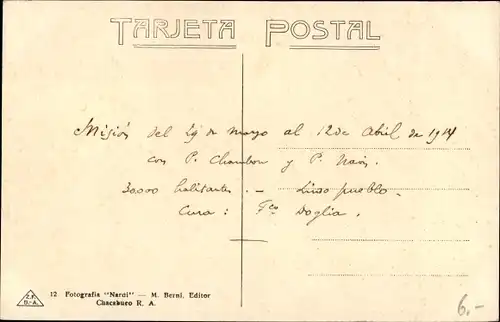 TARJETA POSTAL
Misión del 29 de marzo al 12 de Abril de 1914
con P. Chambon y P.
30,000 habitantes. — Lindo pueblo.
Cura: Fco Doglia.
12 Fotografia "Nardi" — M. Berni, Editor
Chacabuco R. A.
6.-